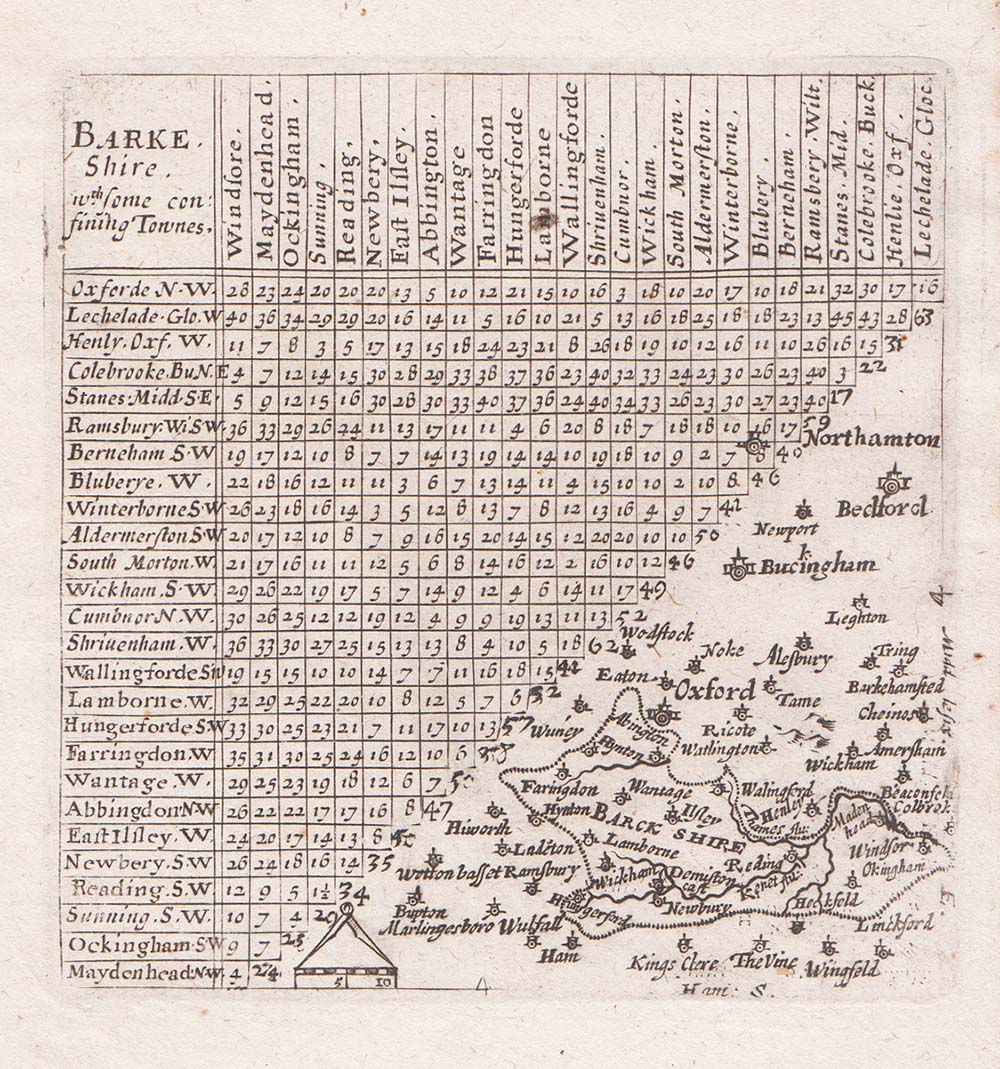 BARKE.
Shire.
wth some con:
fining Townes.
Windsore.
Maydenhead.
Ockingham.
Sunning.
Reading.
Newbery.
East Illsey.
Abbington.
Wantage
Farringdon
Hungerforde
Lamborne
Wallingforde
Shriuenham.
Cumbnor.
Wickham.
South Morton.
Aldermerston.
Winterborne.
Blubery.
Berneham.
Ramsbery. Wilt.
Stanes. Mid.
Colebrooke. Buck.
Henlie. Oxf.
Lechelade. Gloc.
Oxforde N.W. 28 23 24 20 20 20 13 5 10 12 21 15 10 16 3 18 10 20 17 10 18 21 32 30 17 16
Lechelade. Glo. W 40 36 34 29 29 20 16 14 11 5 16 10 21 5 13 16 18 25 18 18 23 13 45 43 28 63
Henly. Oxf. W. 11 7 8 3 5 17 13 15 18 24 23 21 8 26 18 19 10 12 16 11 10 26 16 15 31
Colebrooke. Bu. N. E 4 7 12 14 15 30 28 29 33 38 37 36 23 40 32 33 24 23 30 26 23 40 3 22
Stanes. Midd. S. E. 5 9 12 15 16 30 28 30 33 40 37 36 24 40 34 33 26 23 30 27 23 40 17
Ramsbury. Wi. S. W. 36 33 29 26 24 11 13 17 11 11 4 6 20 8 18 7 18 18 10 16 17 59
Berneham. S. W 19 17 12 10 8 7 7 14 13 19 14 14 10 19 18 10 9 2 7 8 40
Bluberye. W. 22 18 16 12 11 11 3 6 7 13 14 11 4 15 10 10 2 10 8 46
Winterborne S. W 26 23 18 16 14 3 5 12 8 13 7 8 12 13 16 4 9 7 42
Aldermerston. S. W 20 17 12 10 8 7 9 16 15 20 14 15 12 20 20 10 10 50
South Morton. W. 21 17 16 11 11 12 5 6 8 14 16 12 2 16 10 12 46
Wickham. S. W. 29 26 22 19 17 5 7 14 9 12 4 6 14 11 17 49
Cumbuor. N. W. 30 26 25 12 12 19 12 4 9 9 19 13 11 13 52
Shriuenham. W. 36 33 30 27 25 15 13 13 8 4 10 5 18 62
Wallingforde SW 19 15 15 10 10 14 7 7 11 16 18 15 42
Lamborne. W. 32 29 25 22 20 10 8 12 5 7 6 52
Hungerforde. S. W 33 30 25 23 21 7 11 17 10 13 57
Farringdon. W 35 31 30 25 24 16 12 10 6
Wantage. W. 29 25 23 19 18 12 6 7
Abbingdon. N. W 26 22 22 17 17 16 8 47
East Illsley. W. 24 20 17 14 13 8
Newbery. S. W 26 24 18 16 14 35
Reading. S. W. 12 9 5 1½ 34
Sunning. S. W. 10 7 4 29
Ockingham. S W 9 7 23
Maydenhead. N. W 4 274
5 10
Northamton
Bedford
Newport
Buckingham
Leghton
Wodstock
Noke
Alesbury
Tring
Eaton
Oxford
Tame
Barkehamsted
Cheinos
Wuney
Abington
Hynton
Ricote
Watlington
Amersham
Wickham
Faringdon
Wantage
Walingford
Beaconfeld
Colbrok
Hiworth
Hynton
BARCK SHIRE
Ilsley
Thames flu:
Henley
Maden
head
Windsor
Okingham
Ladeton
Lamborne
Wotton basset
Ramsbury
Wickham
Demiston
cast
Reding
Kenet flu:
Bupton
Marlingesboro
Wulfall
Hungerford
Newbury
Heckfeld
Linckford
Ham
Kings Clere
The Vine
Wingfeld
Middelsix
4
E.
4
Ham: S.